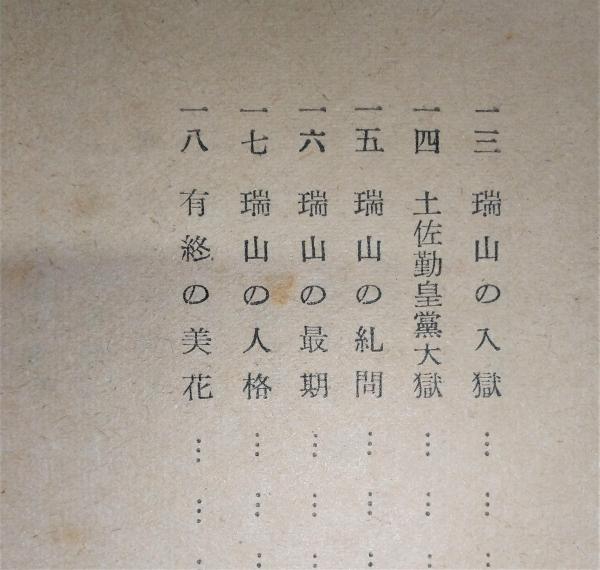 一三 瑞山の入獄………
一四 土佐勤皇黨大獄………
一五 瑞山の糺問………
一六 瑞山の最期………
一七 瑞山の人格………
一八 有終の美花………